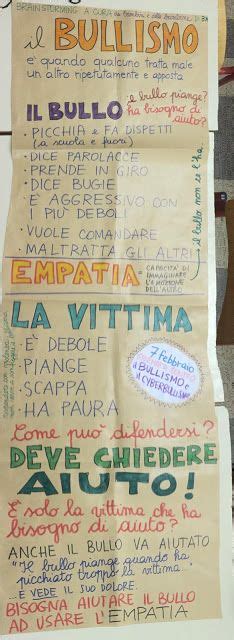 BRAINSTORMING A CURA dei bambini e delle bambine DI 3A
il BULLISMO
è quando qualcuno tratta male
un altro ripetutamente e apposta
il bullo piange?
ha bisogno di
aiuto?
IL BULLO
• PICCHIA e FA DISPETTI
(a scuola e fuori)
• DICE PAROLACCE
• PRENDE IN GIRO
• DICE BUGIE
• È AGGRESSIVO CON
I PIÙ DEBOLI
• VUOLE COMANDARE
• MALTRATTA GLI ALTRI
il bullo non ce l'ha
EMPATIA
CAPACITÀ DI
IMMAGINARE
L'EMOZIONE
DELL'ALTRO
LA VITTIMA
• È DEBOLE
• PIANGE
• SCAPPA
• HA PAURA
7 febbraio
il BULLISMO e
il CYBERBULLISMO
Come può difendersi?
DEVE CHIEDERE
AIUTO!
È solo la vittima che ha
bisogno di aiuto?
ANCHE IL BULLO VA AIUTATO
"Il bullo piange quando ha
picchiato troppo la vittima...
...E VEDE IL SUO DOLORE.
BISOGNA AIUTARE IL BULLO
AD USARE L'EMPATIA